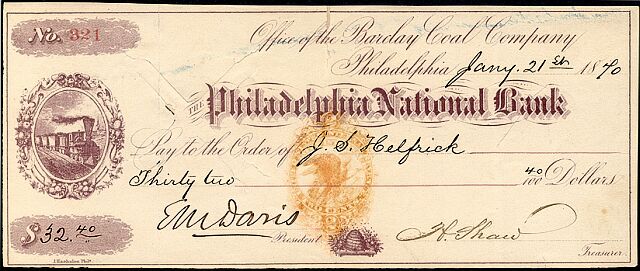 No. 321
Office of the Barclay Coal Company
Philadelphia Jany. 21st 1870
THE Philadelphia National Bank
Pay to the Order of J. S. Helfrick
Thirty two 40/100 Dollars
$32.40
President
H. Shaw
Treasurer